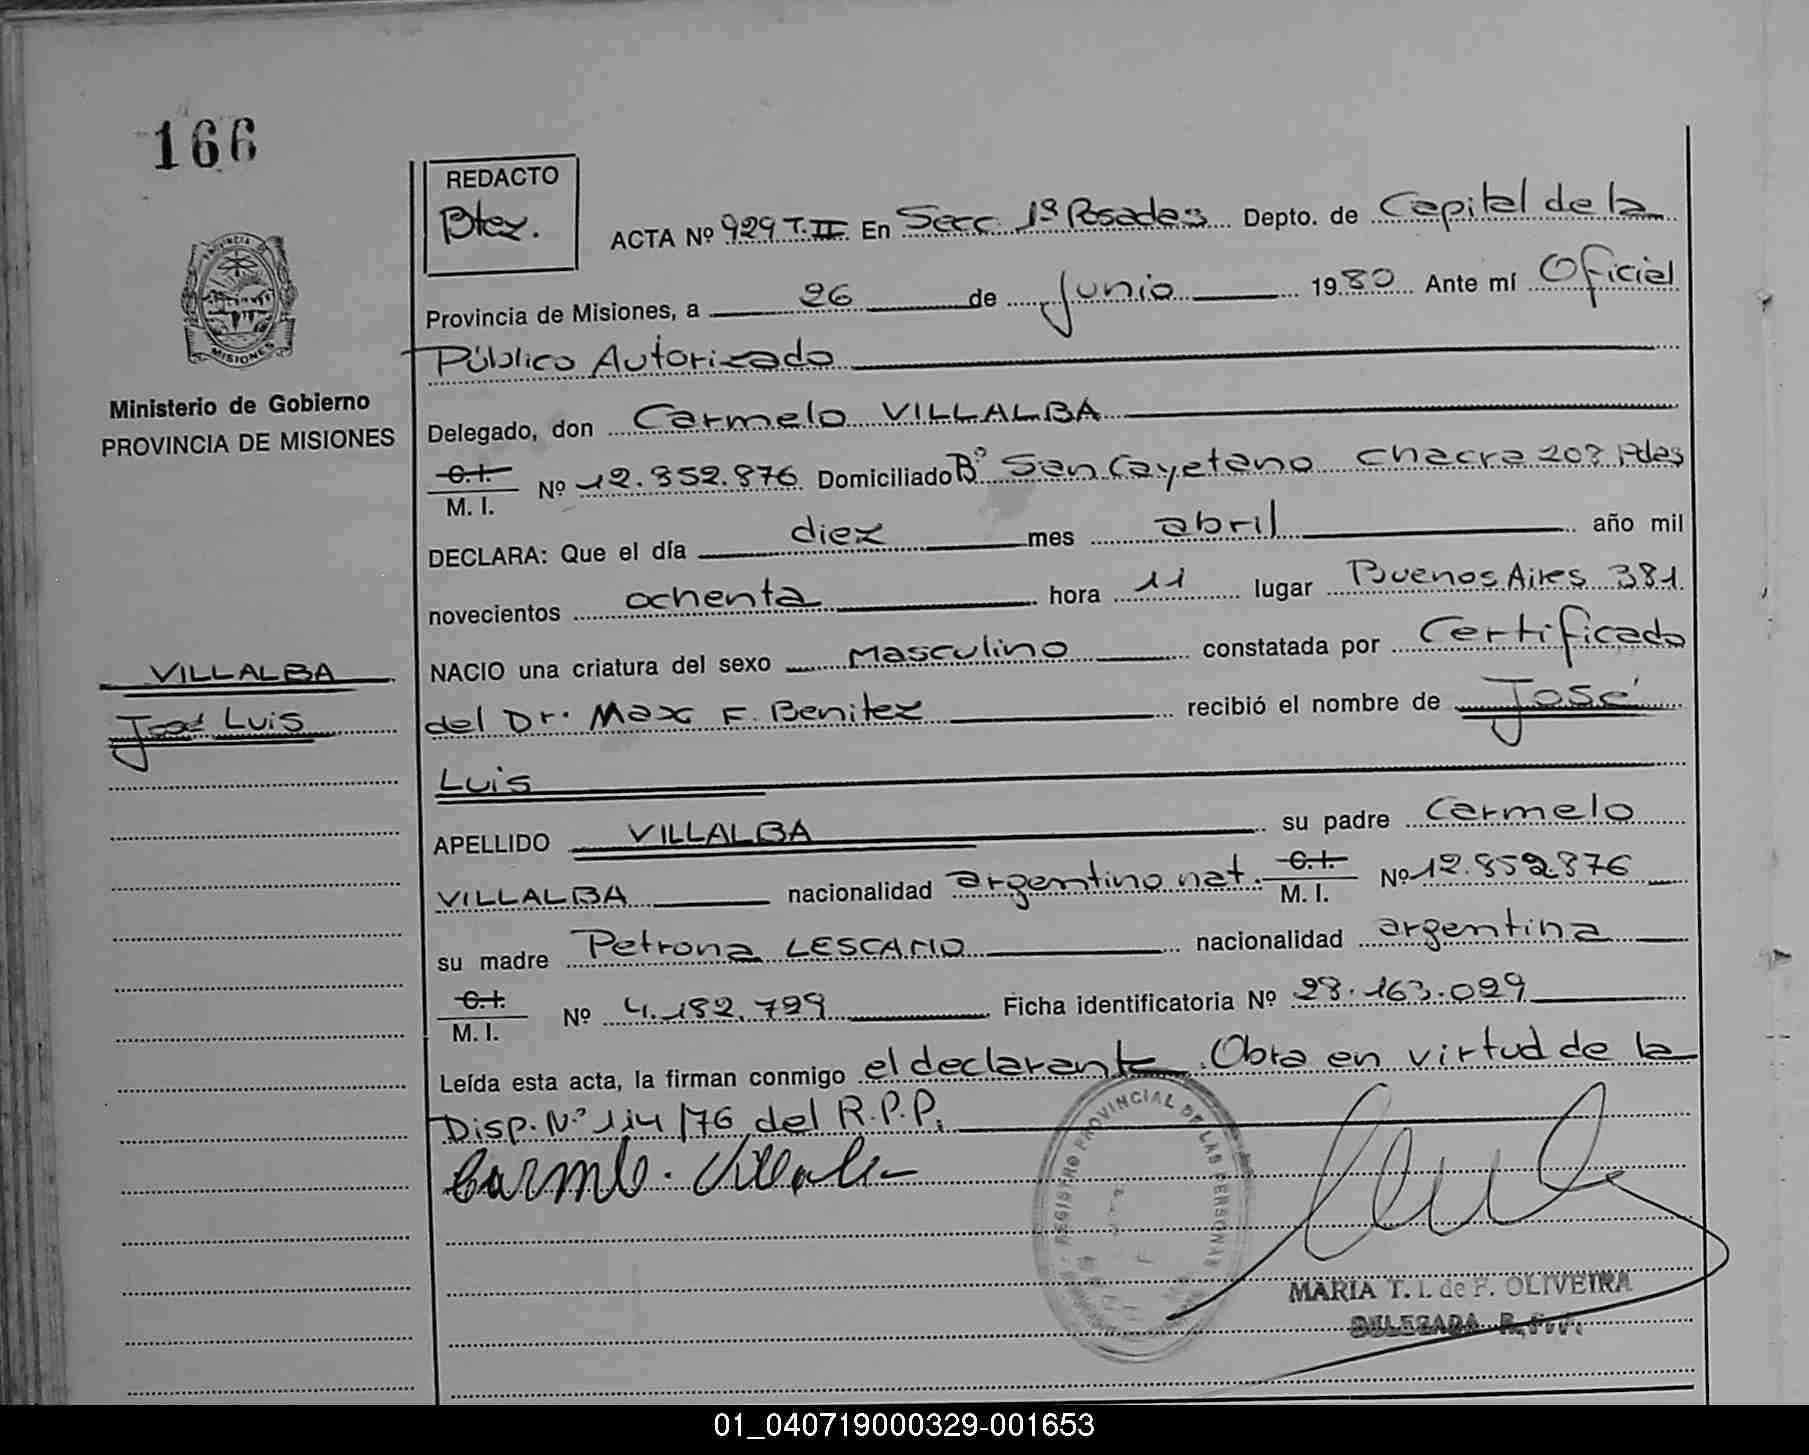 166
REDACTO
Btez.
ACTA Nº 929 T. II En Secc. 1ª Posadas Depto. de Capital de la
Provincia de Misiones, a 26 de Junio 1980 Ante mí Oficial
Público Autorizado
PROVINCIA DE MISIONES
Ministerio de Gobierno
PROVINCIA DE MISIONES
Delegado, don Carmelo VILLALBA
C.I.
M. I. Nº 12.852.876 Domiciliado Bº San Cayetano chacra 202 Pdas
DECLARA: Que el día diez mes abril año mil
novecientos ochenta hora 11 lugar Buenos Aires 381
NACIO una criatura del sexo Masculino constatada por Certificado
VILLALBA
José Luis
del Dr. Max F. Benitez recibió el nombre de José
Luis
APELLIDO VILLALBA su padre Carmelo
VILLALBA nacionalidad argentino nat. C.I. M. I. Nº 12.852.876
su madre Petrona LESCANO nacionalidad argentina
C.I.
M. I. Nº 4.182.799 Ficha identificatoria Nº 28.163.029
Leída esta acta, la firman conmigo el declarante. Obra en virtud de la
Disp. Nº 114/76 del R.P.P.
Carmelo Villalba
REGISTRO PROVINCIAL DE LAS PERSONAS
MARIA T. I. de F. OLIVEIRA
DELEGADA R.P.P.
01_040719000329-001653